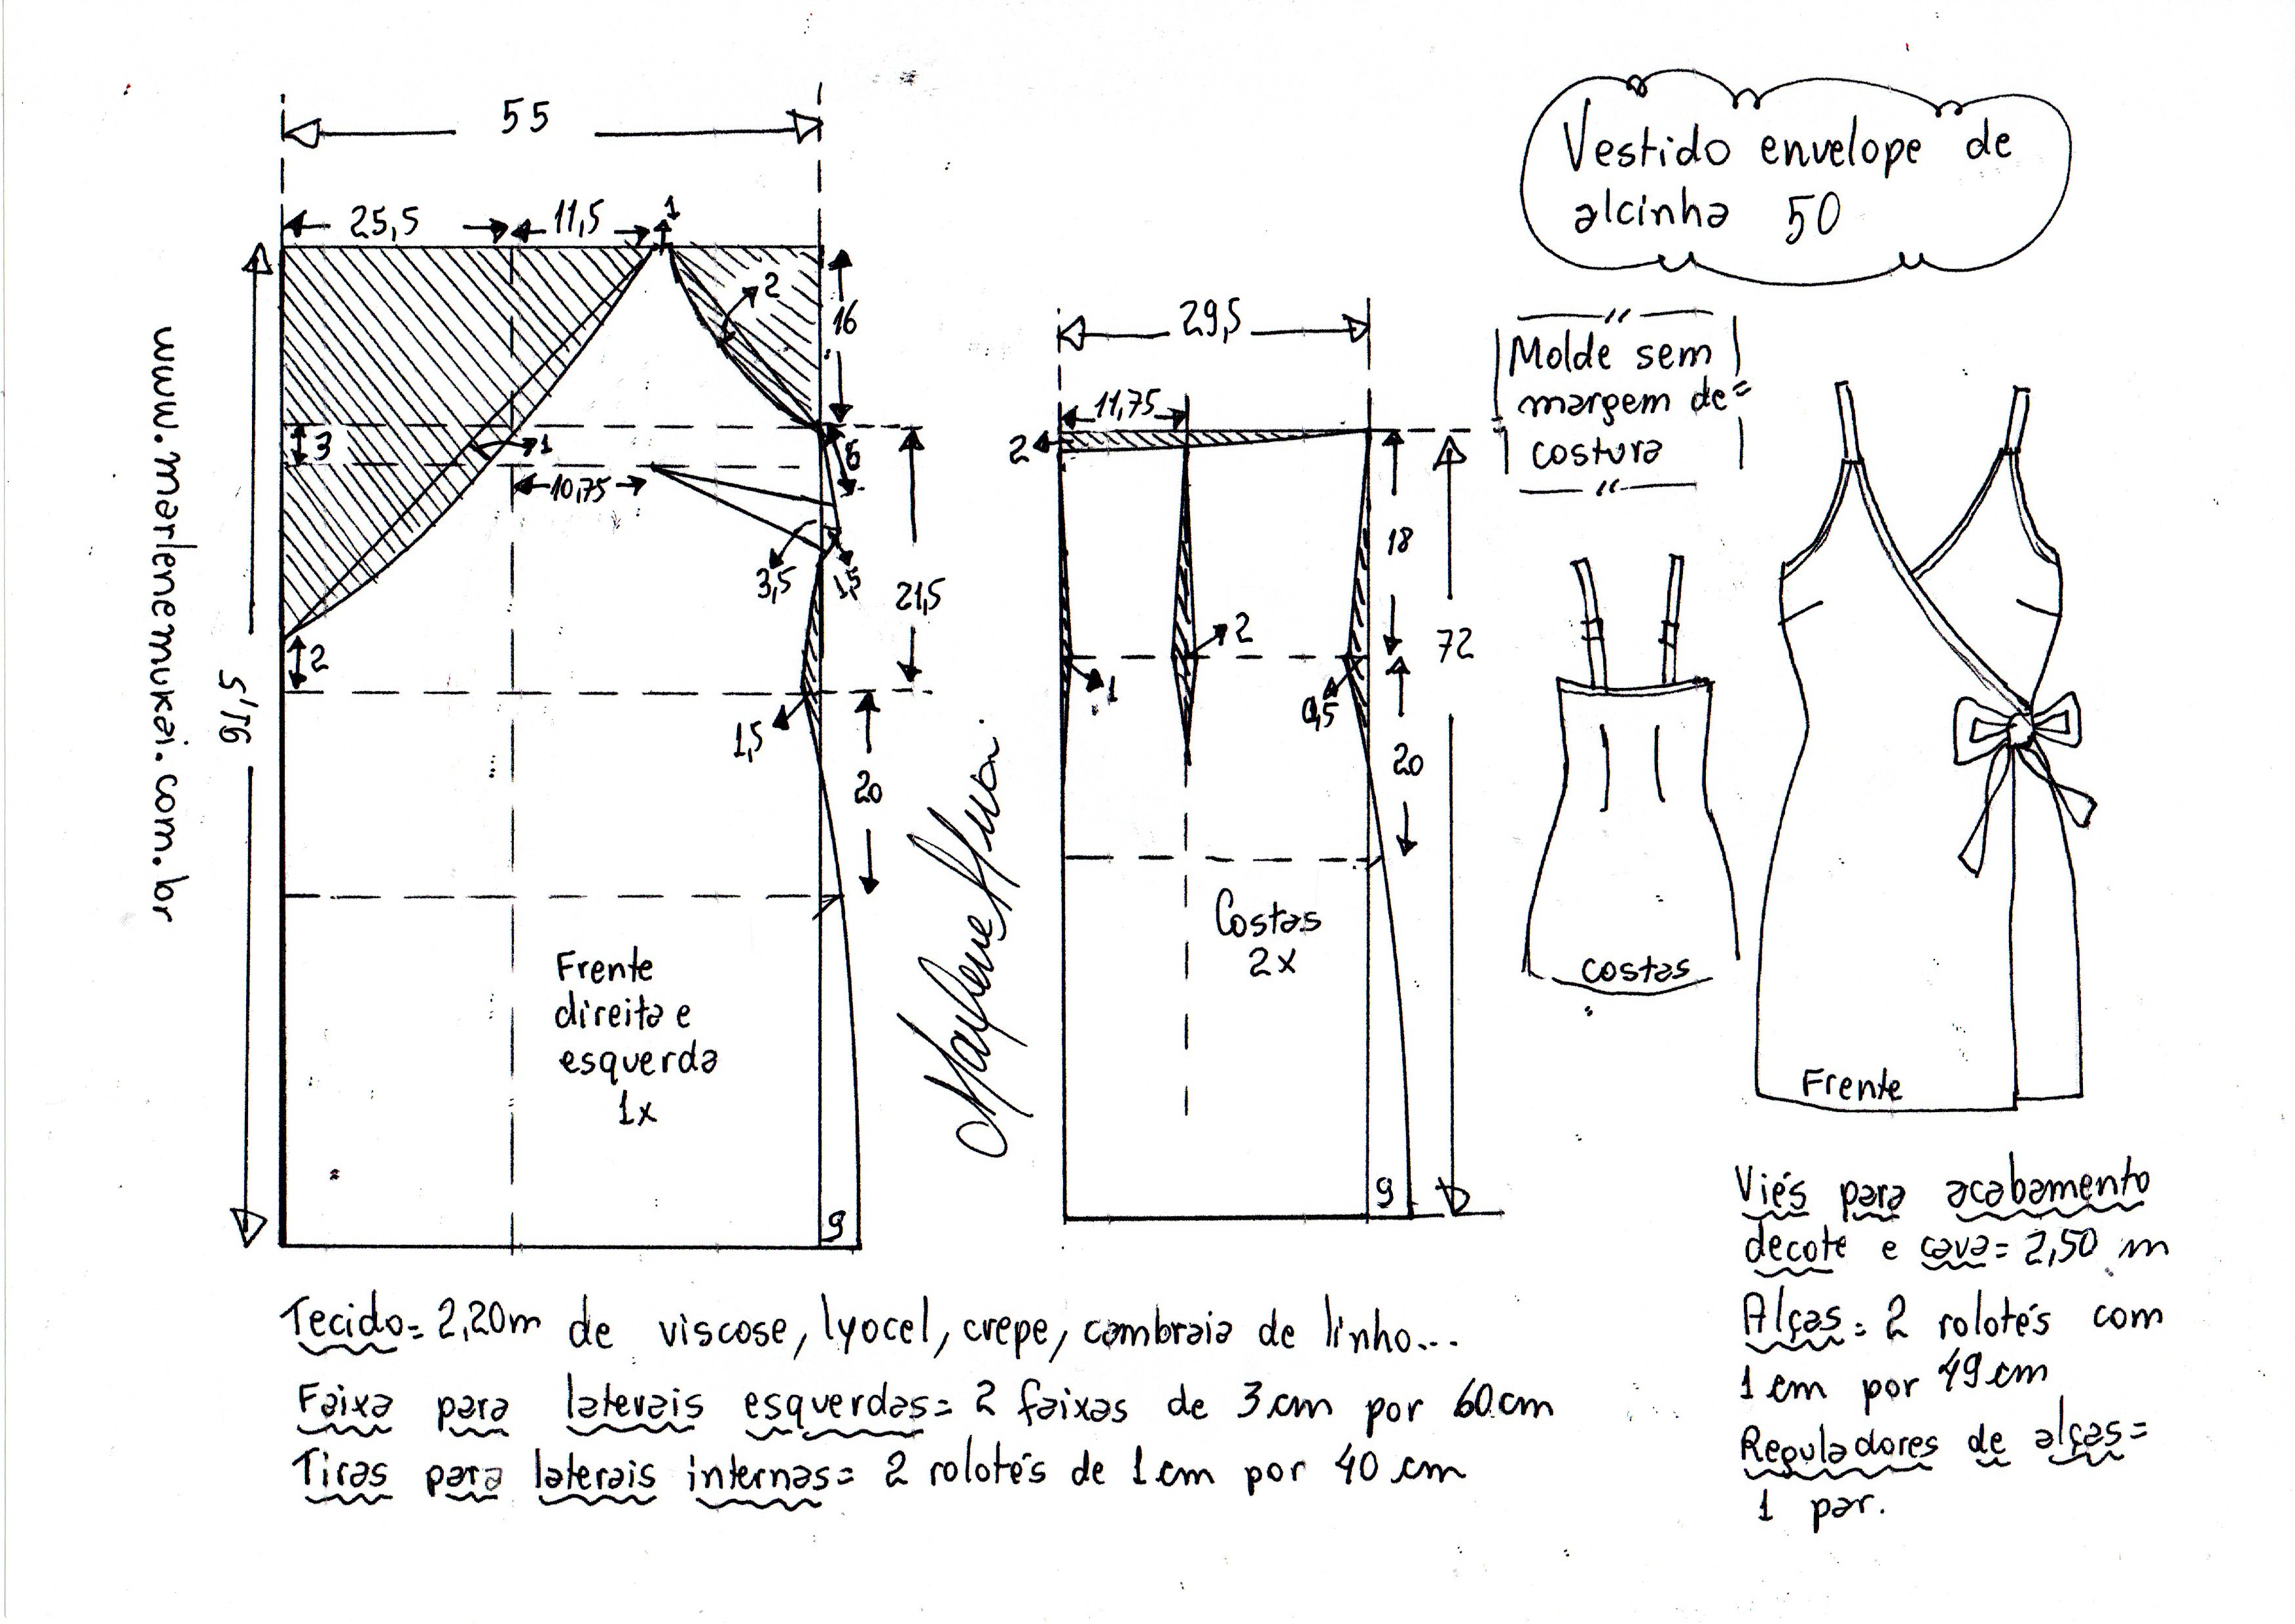 55
25,5
11,5
1
2
16
3
1
6
10,75
3,5
1,5
21,5
2
1,5
20
Frente
direita e
esquerda
1x
9
www.marlenemukai.com.br
29,5
11,75
2
18
72
2
1
0,5
20
Costas
2x
9
Vestido envelope de
alcinha 50
Molde sem
margem de=
costura
costas
Frente
Tecido= 2,20m de viscose, lyocel, crepe, cambraia de linho...
Faixa para laterais esquerdas= 2 faixas de 3cm por 60cm
Tiras para laterais internas= 2 rolotés de 1cm por 40 cm
Viés para acabamento
decote e cava= 2,50 m
Alças= 2 rolotés com
1 cm por 49cm
Reguladores de alças=
1 par.